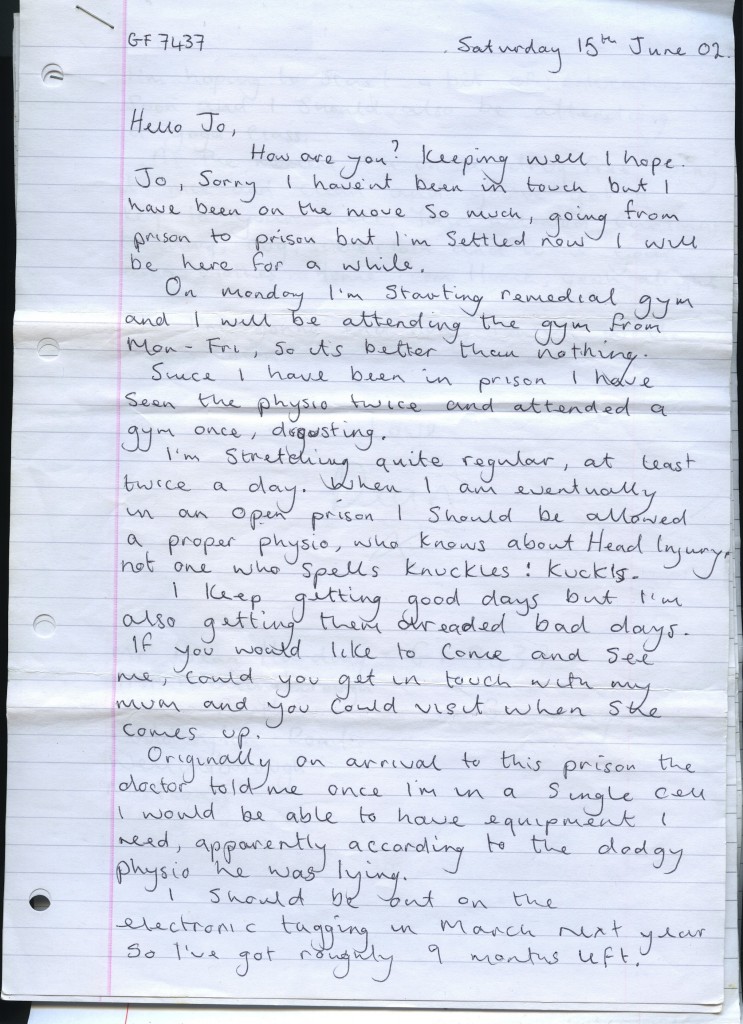 GF 7437
Saturday 15th June 02.
Hello Jo,
How are you? Keeping well I hope.
Jo, Sorry I haven't been in touch but I
have been on the move so much, going from
prison to prison but I'm Settled now I will
be here for a while.
On monday I'm Starting remedial gym
and I will be attending the gym from
Mon - Fri, so it's better than nothing.
Since I have been in prison I have
Seen the physio twice and attended a
gym once, disgusting.
I'm Stretching quite regular, at least
twice a day. When I am eventually
in an open prison I Should be allowed
a proper physio, who knows about Head Injury,
not one who spells knuckles! Kuckls.
I Keep getting good days but I'm
also getting them dreaded bad days.
If you would like to Come and See
me, Could you get in touch with my
mum and you Could visit when She
comes up.
Originally on arrival to this prison the
doctor told me once I'm in a Single Cell
I would be able to have equipment I
need, apparently according to the dodgy
physio he was lying.
I Should be out on the
electronic tagging in March next year
So I've got roughly 9 months left.